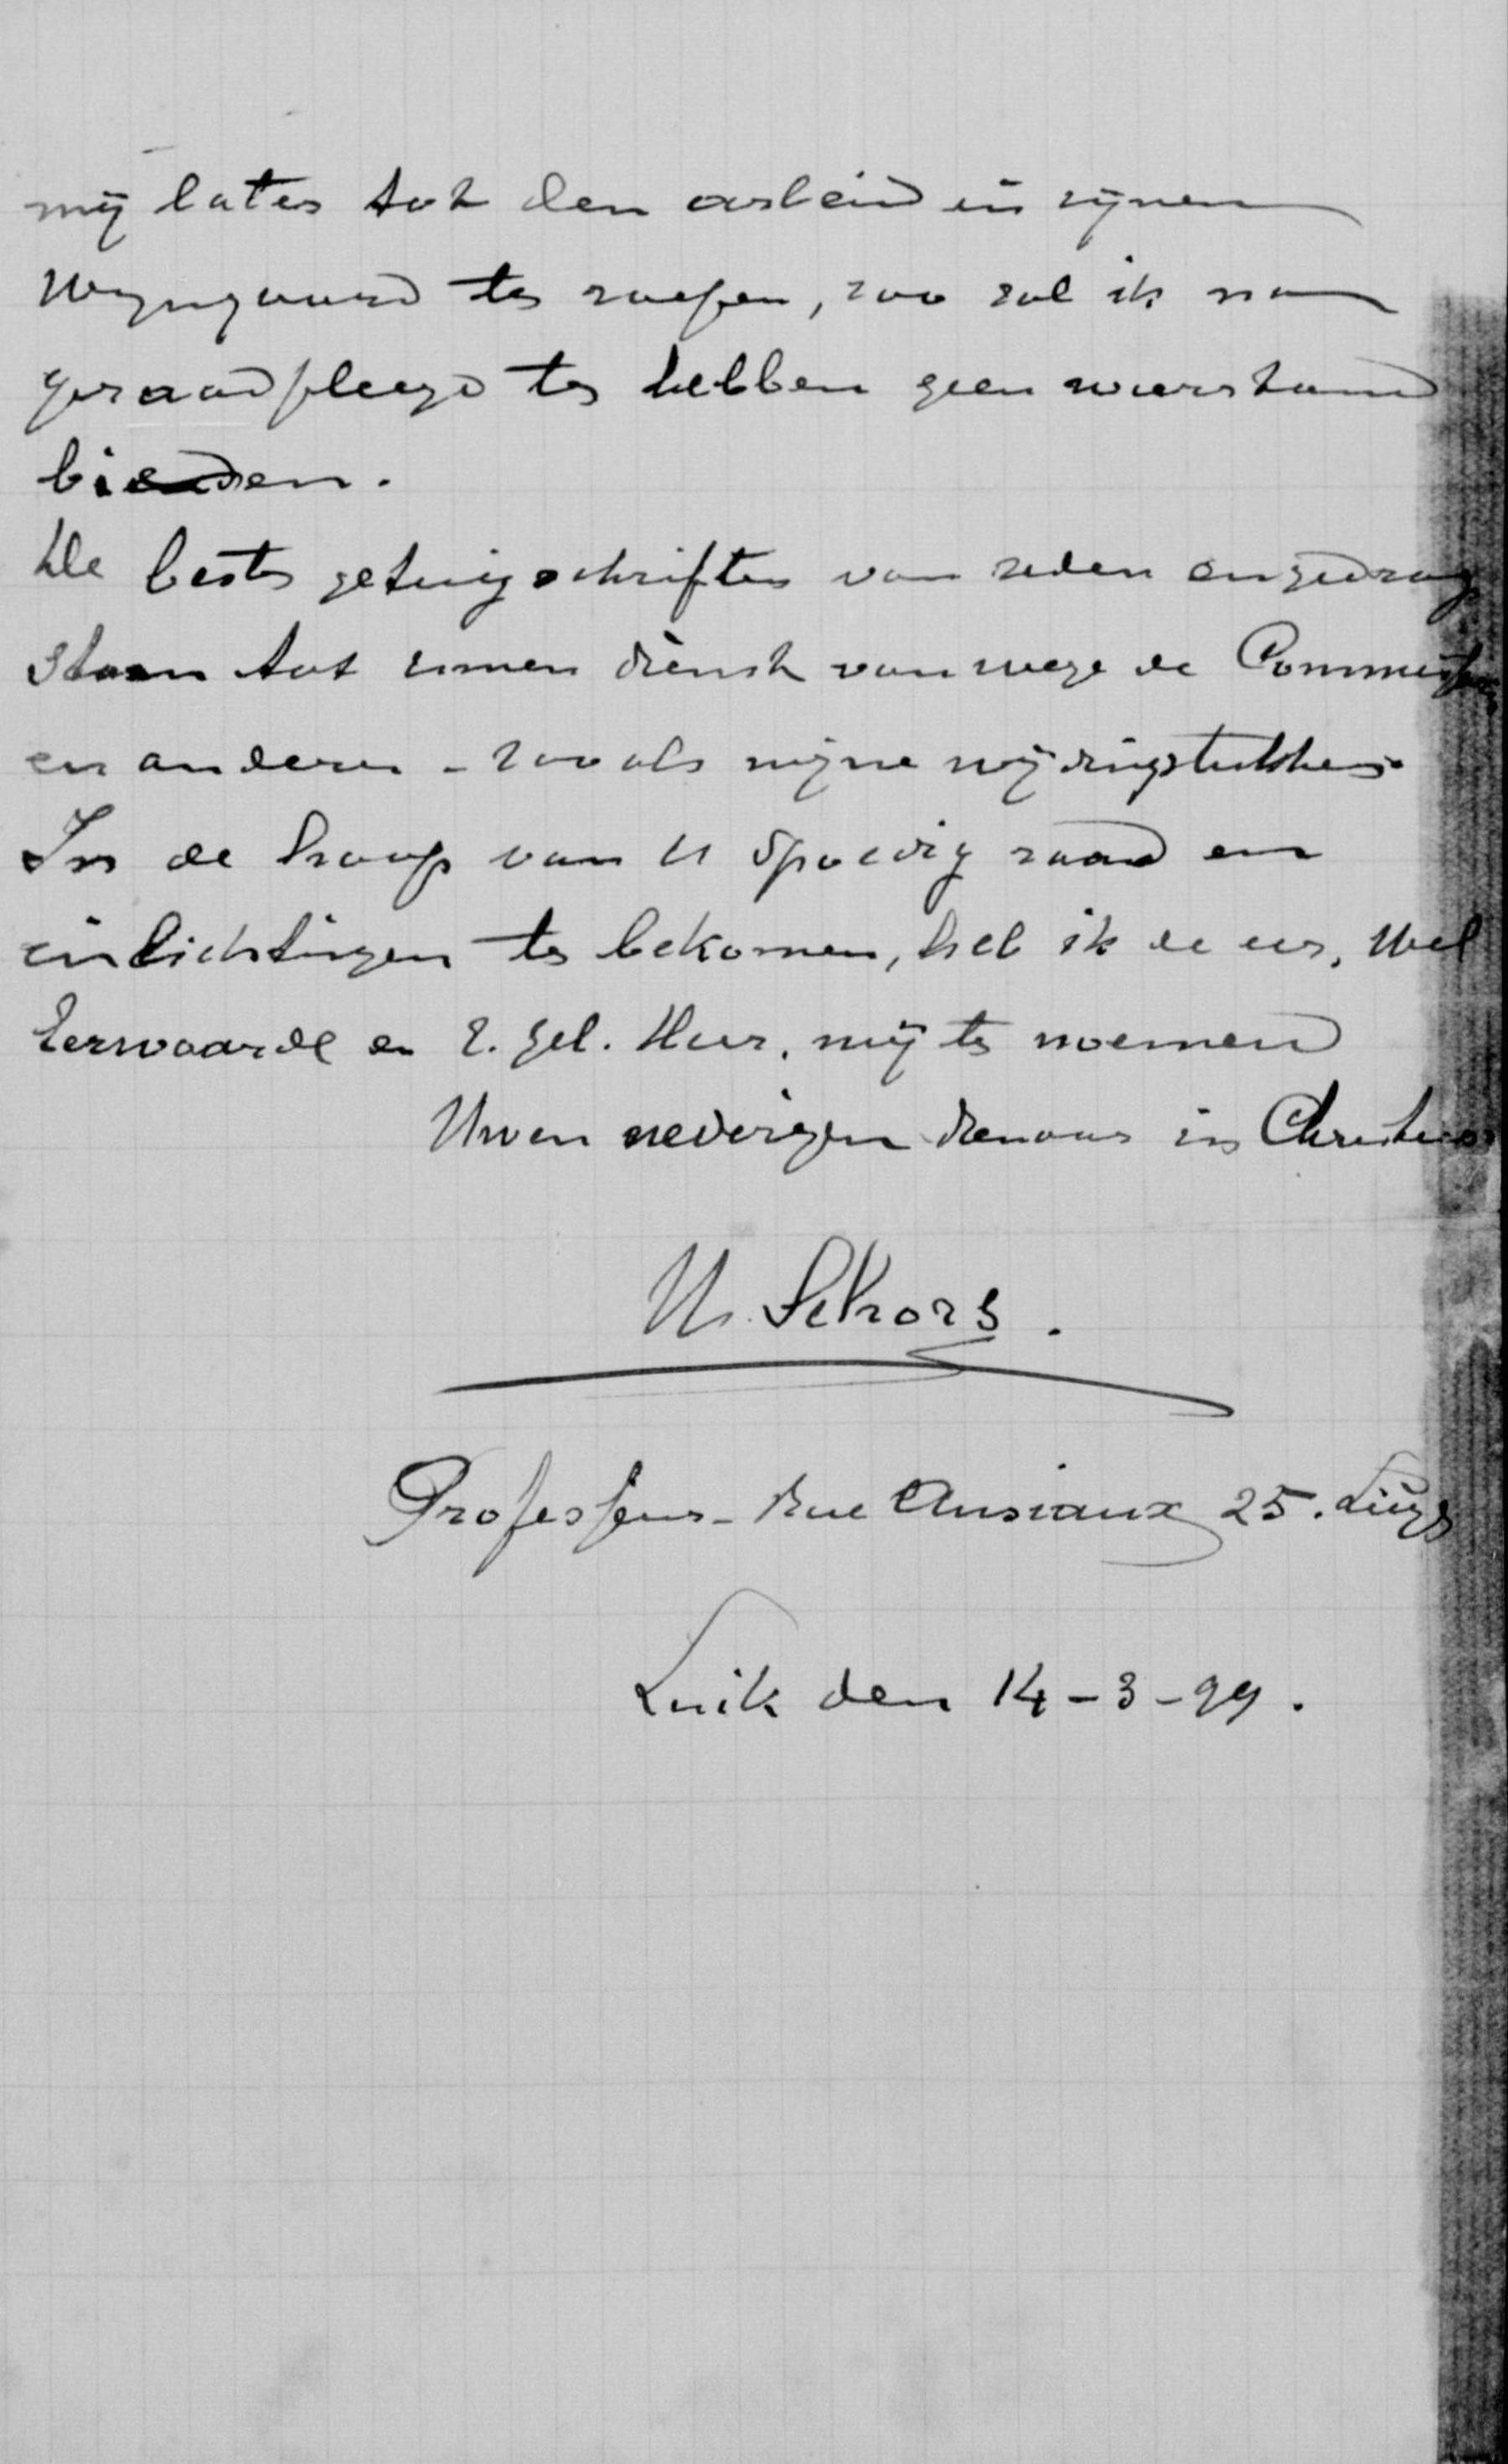 mij later tot den arbeid in zijnen
Wijngaard te roepen, zoo zal ik na
geraadpleegd te hebben geen weerstand
bieden.
De beste getuigschriften van zeden en gedrag
staan tot uwen dienst vanwege de
en andere - zooals mijne wijdingstukken.
In de hoop van U spoedig raad en
inlichtingen te bekomen, heb ik de eer, Wel
Eerwaarde en Z. Gel. Heer, mij te noemen
Uwen nederigen dienaar in Christus
Professeur - Rue Ansiaux 25. Liége
Luik den 14-3-99.